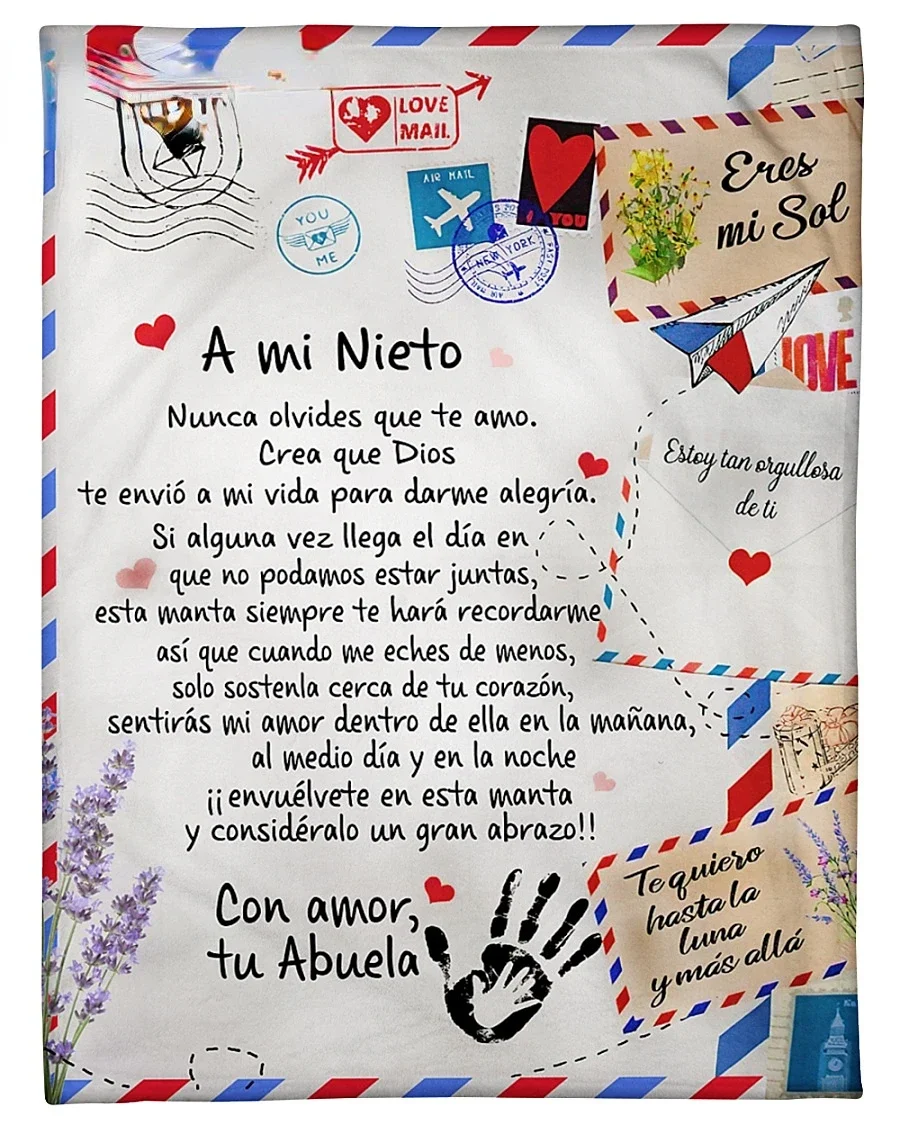 LOVE
MAIL
AIR MAIL
YOU
YOU
ME
NEW YORK
Eres
mi Sol
LOVE
A mi Nieto
Nunca olvides que te amo.
Crea que Dios
te envió a mi vida para darme alegría.
Si alguna vez llega el día en
que no podamos estar juntas,
esta manta siempre te hará recordarme
así que cuando me eches de menos,
solo sostenla cerca de tu corazón,
sentirás mi amor dentro de ella en la mañana,
al medio día y en la noche
¡¡envuélvete en esta manta
y considéralo un gran abrazo!!
Con amor,
tu Abuela
Estoy tan orgullosa
de ti
Te quiero
hasta la
luna
y más allá